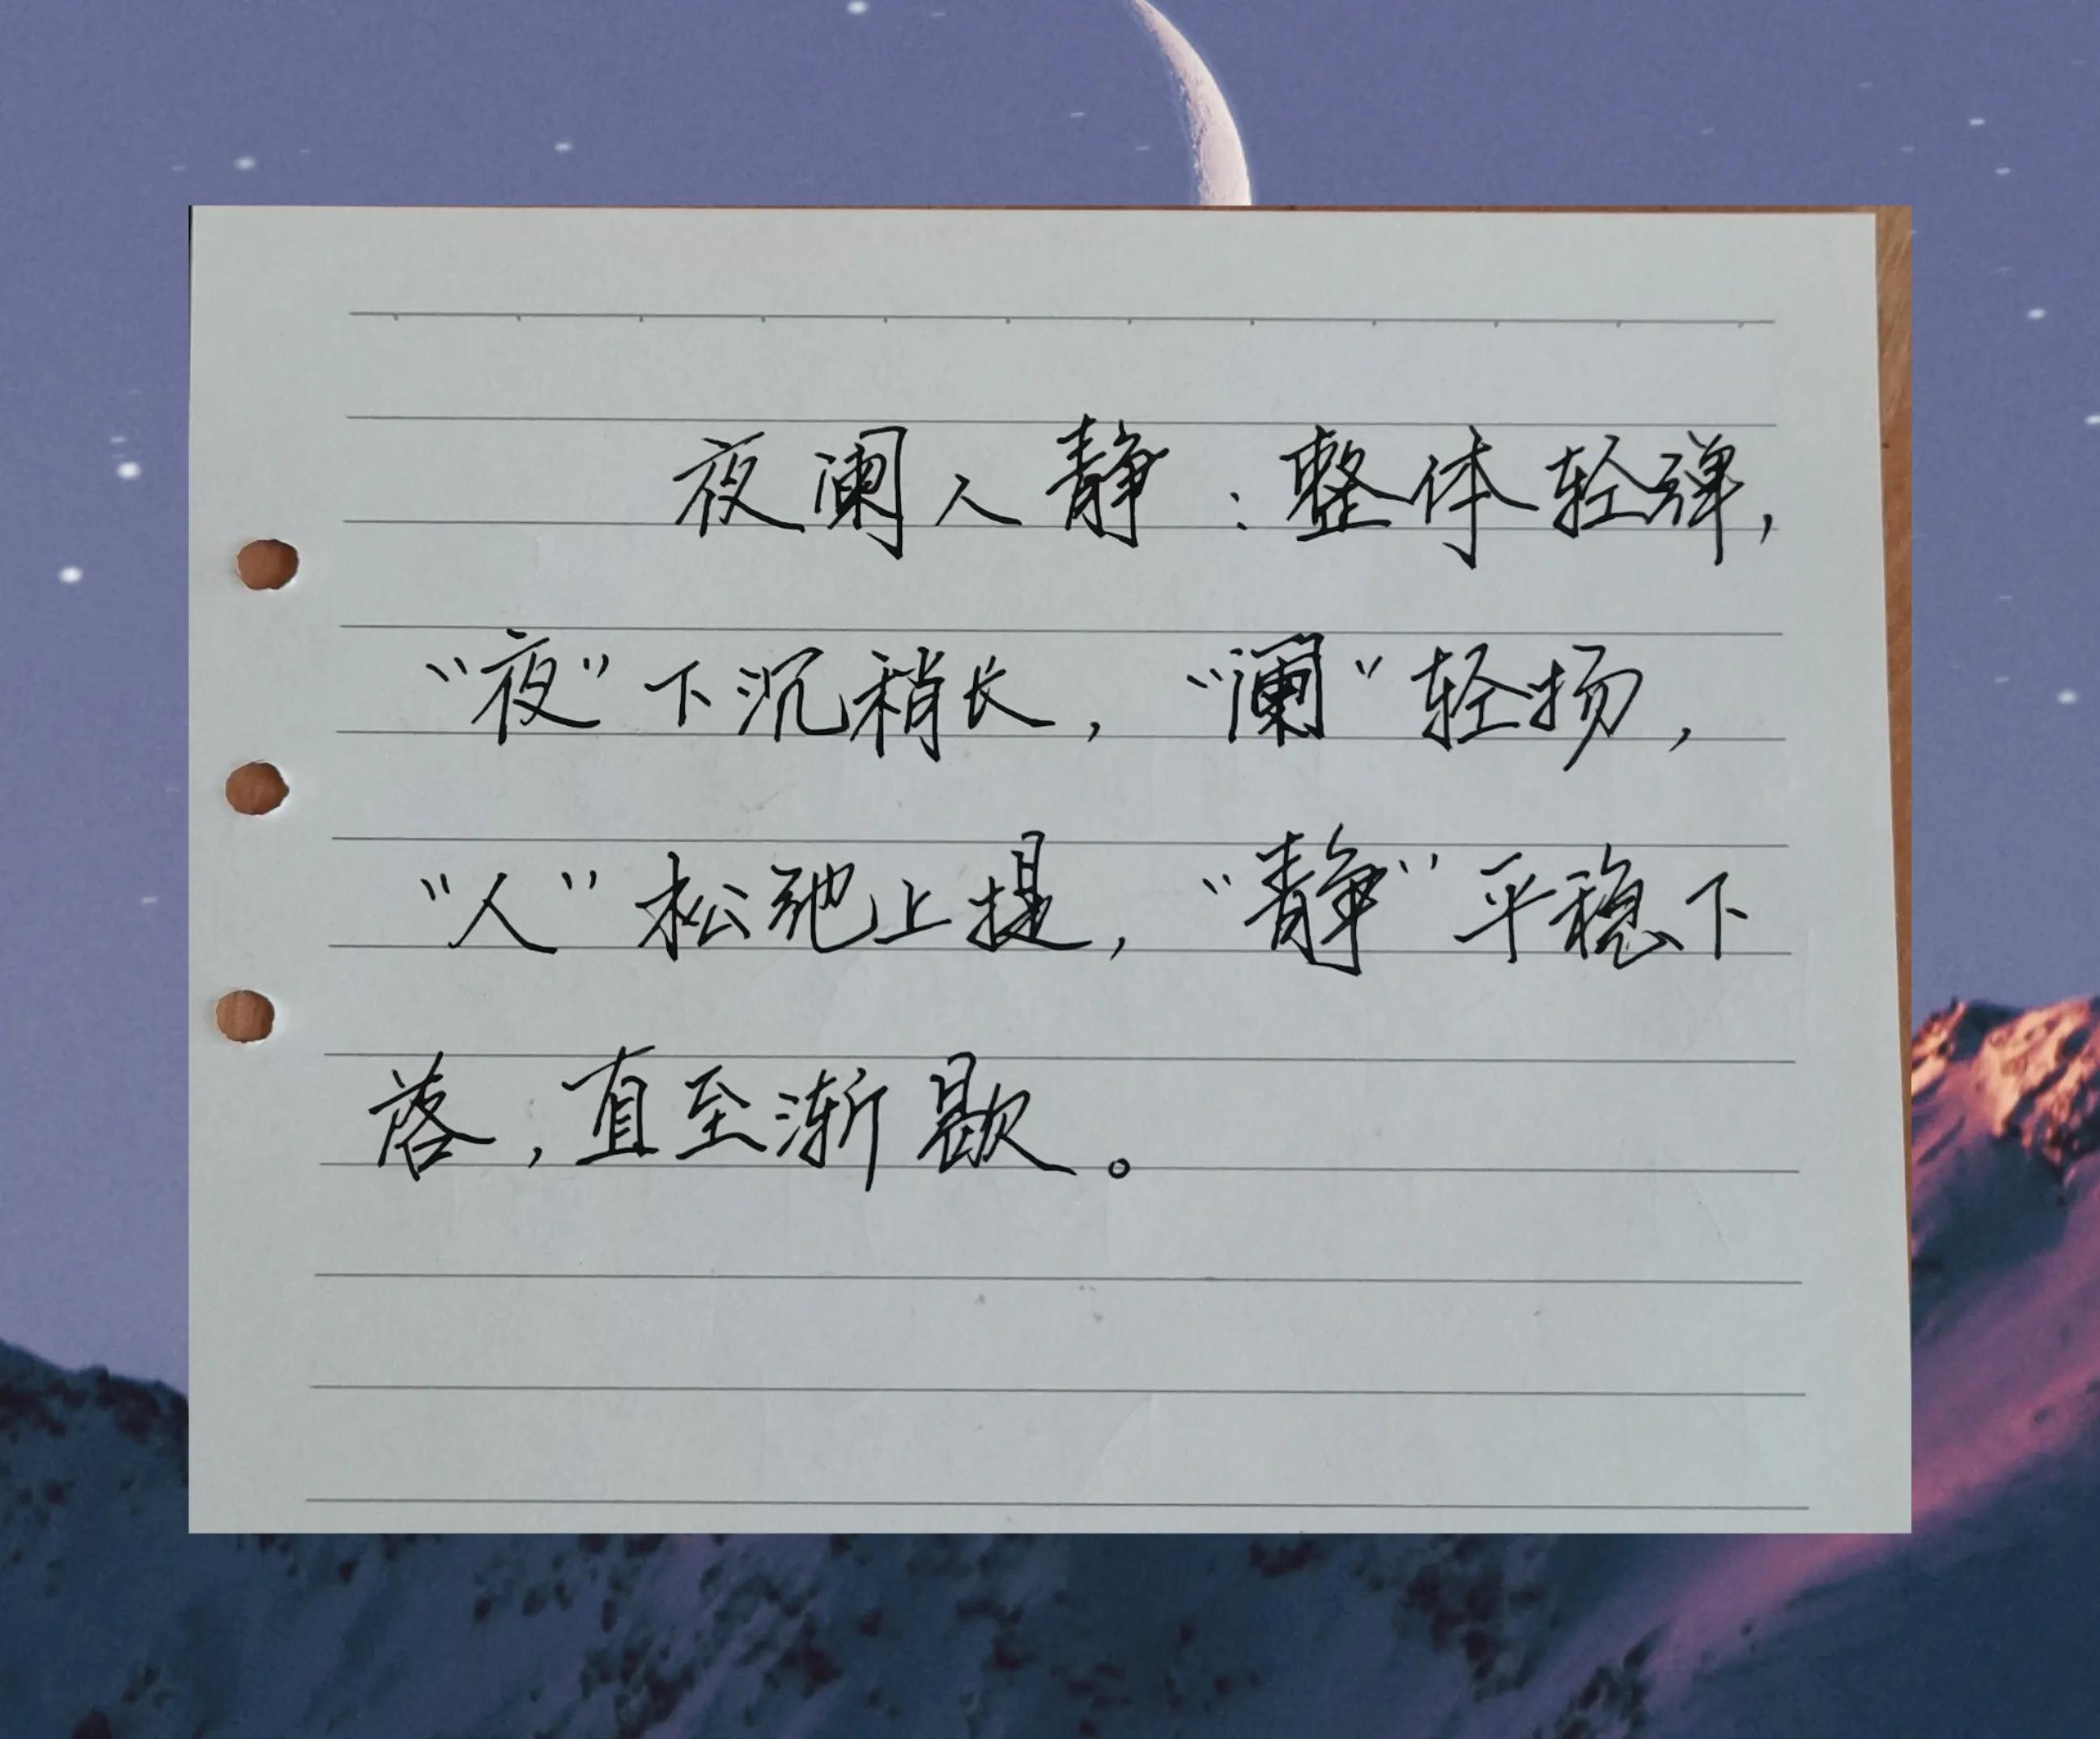 夜阑人静：整体轻弹，
“夜”下沉稍长，“阑”轻扬，
“人”松弛上提，“静”平稳下
落，直至渐歇。